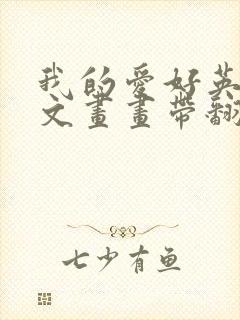 我的爱好英
文画画带翻
七少有鱼